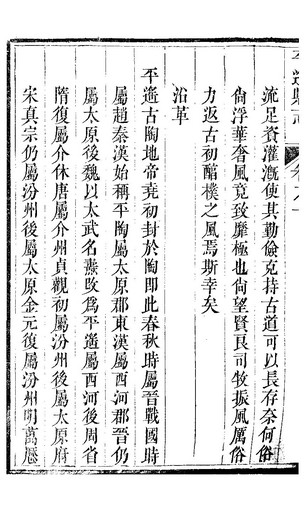 流足資灌漑使其勤儉克持古道可以長存奈何俗
尙浮華奢風竟致靡極也尙望賢良司牧振風厲俗
力返古初醕樸之風焉斯幸矣
沿革
平遙古陶地帝堯初封於陶卽此春秋時屬晉戰國時
屬趙秦漢始稱平陶屬太原郡東漢屬西河郡晉仍
屬太原後魏以太武名燾改爲平遙屬西河後周省
隋復屬介休唐屬介州貞觀初屬汾州後屬太原府
宋眞宗仍屬汾州後屬太原金元復屬汾州明萬曆